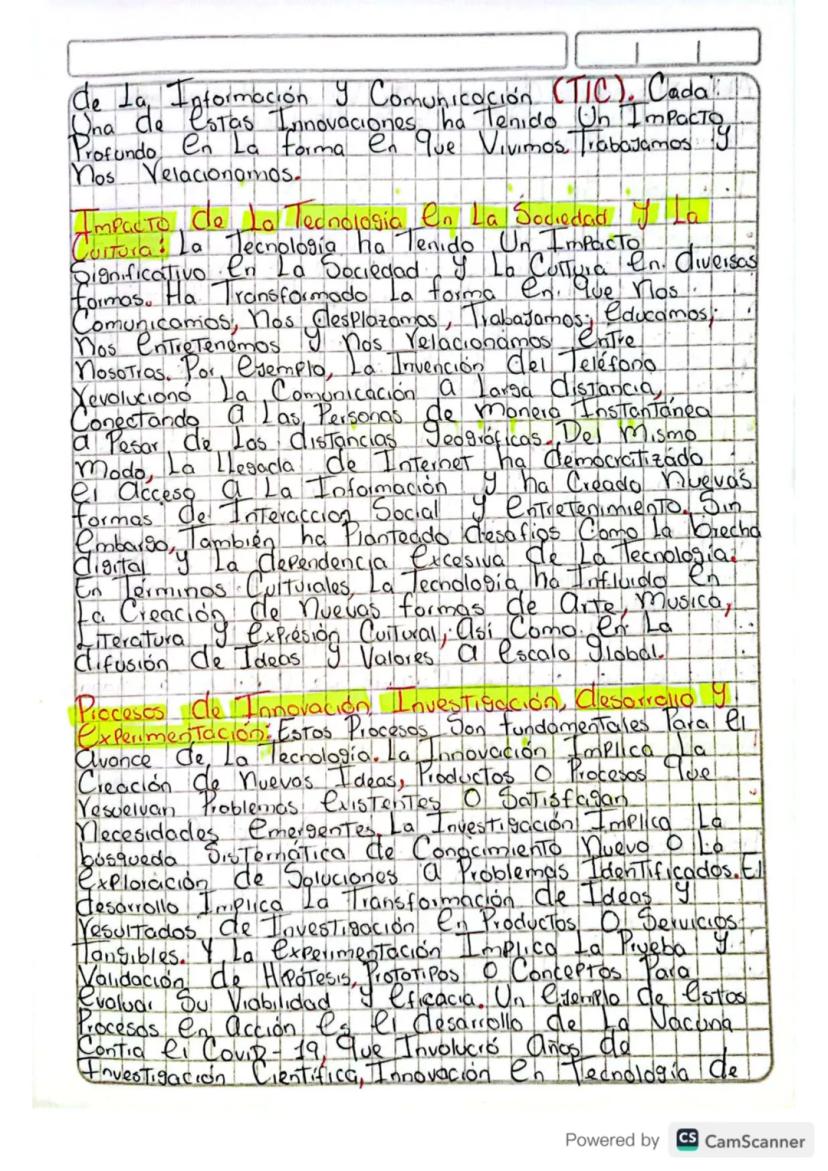 de La Información y Comunicación (TIC). Cada
Una de estas Innovaciones ha Tenido Un Impacto
Profundo en La forma en que Vivimos, Trabajamos y
Nos relacionamos.
Impacto de La Tecnología en La Sociedad y La
Cultura: La Tecnología ha Tenido Un Impacto
Significativo en La Sociedad y La Cultura en diversas
formas. Ha Transformado La forma en que Nos
Comunicamos, Nos desplazamos, Trabajamos, educamos,
Nos entretenemos y nos relacionamos entre
Nosotros. Por ejemplo, La Invención del Teléfono
revolucionó La Comunicación a Larga distancia,
Conectando a Las Personas de Manera Instantánea
a Pesar de Las distancias geográficas. Del Mismo
Modo, La Llegada de Internet ha democratizado
el acceso a La Información y ha Creado nuevas
formas de Interaccion Social y entretenimiento. Sin
embargo, También ha Planteado desafios Como La brecha
digital y La dependencia excesiva de La Tecnología.
En Términos Culturales, La Tecnología ha Influido en
La Creación de nuevas formas de arte, Musica,
Literatura y expresión Cultural, así Como en La
difusión de Ideas y Valores a escala global.
Procesos de Innovación, Investigación, desarrollo y
experimentación: Estos Procesos Son fundamentales Para el
avance de La Tecnología. La Innovación Implica La
Creación de nuevas Ideas, Productos O Procesos que
resuelvan Problemas existentes O Satisfagan
necesidades emergentes. La Investigación Implica La
búsqueda Sistemática de Conocimiento Nuevo O La
exploración de Soluciones a Problemas Identificados. El
desarrollo Implica La Transformación de Ideas y
resultados de Investigación en Productos O Servicios
Tangibles. Y La experimentación Implica La Prueba y
Validación de Hipótesis, Prototipos O Conceptos Para
evaluar Su Viabilidad y eficacia. Un ejemplo de estos
Procesos en acción es el desarrollo de La Vacuna
Contra el Covid-19, que Involucró años de
Investigación Científica, Innovación en Tecnología de
Powered by CS CamScanner